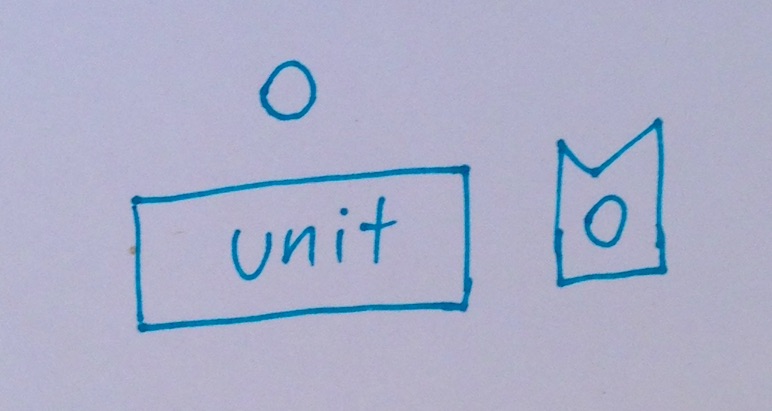 0
unit
0